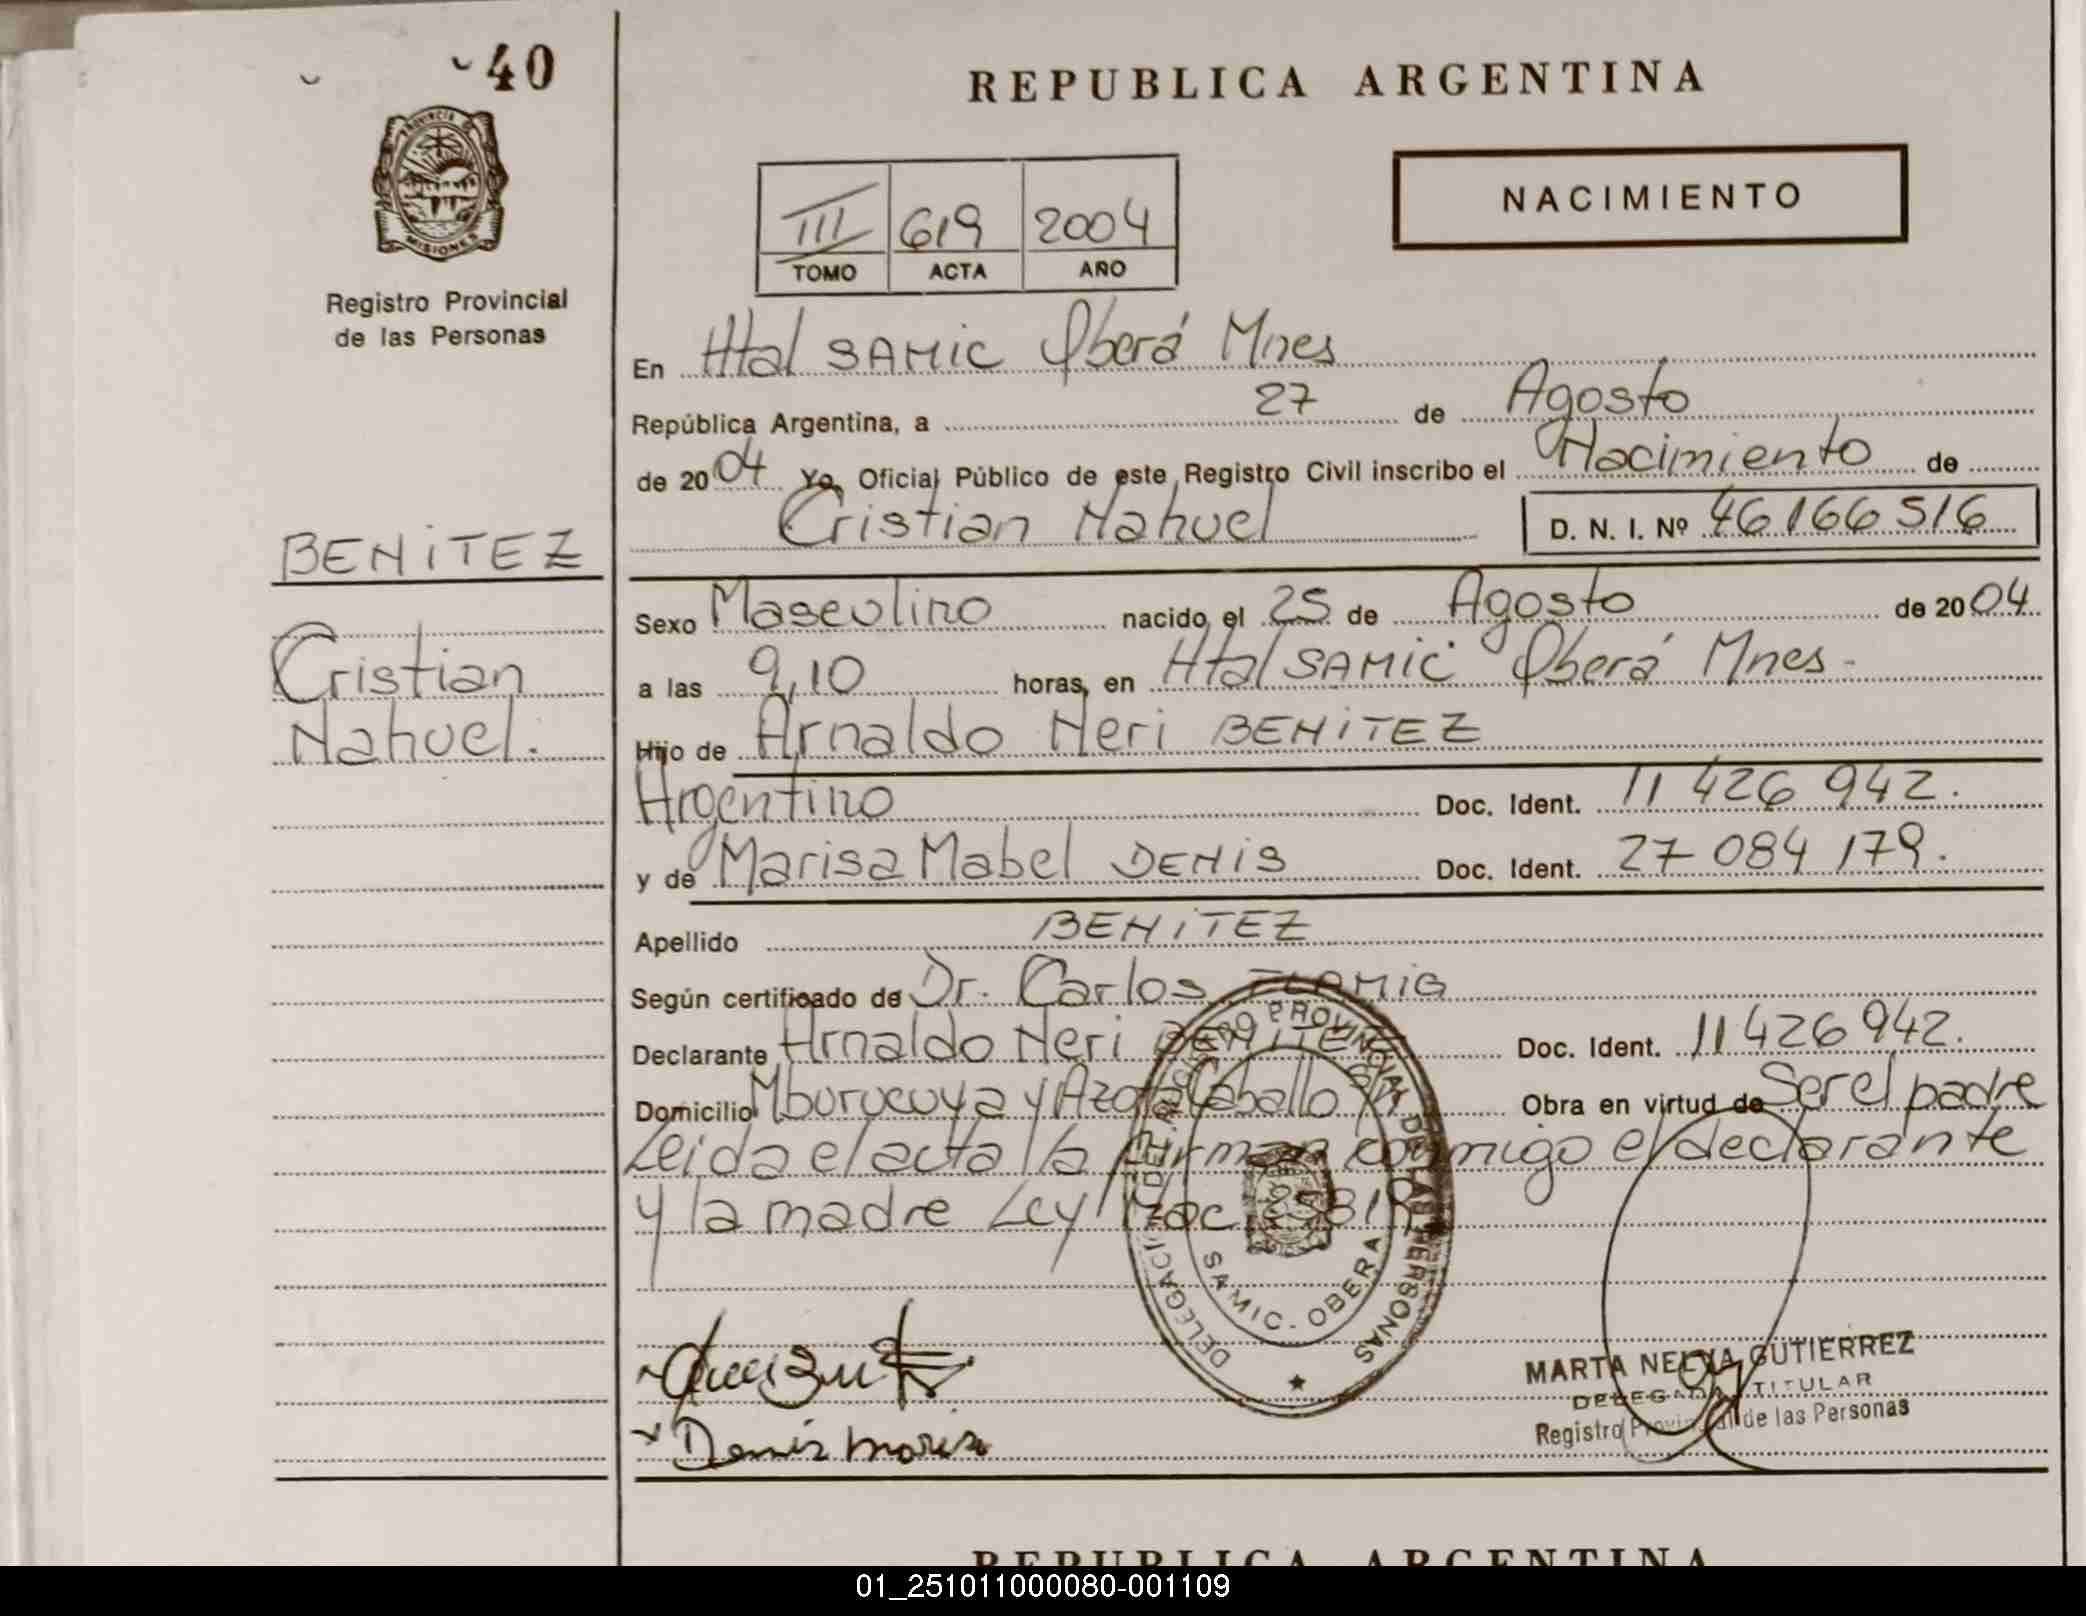 40
PROVINCIA DE
MISIONES
Registro Provincial
de las Personas
BENITEZ
Cristian
Nahuel.
REPUBLICA ARGENTINA
NACIMIENTO
III 619 2004
TOMO ACTA AÑO
En Htal SAMIC Oberá Mnes
República Argentina, a 27 de Agosto
de 2004 Yo, Oficial Público de este Registro Civil inscribo el Nacimiento de
Cristian Nahuel D. N. I. Nº 46166516
Sexo Masculino nacido el 25 de Agosto de 2004
a las 9,10 horas, en Htal SAMIC Oberá Mnes-
Hijo de Arnaldo Neri BENITEZ
Argentino Doc. Ident. 11 426 942.
y de Marisa Mabel DENIS Doc. Ident. 27 084 179.
Apellido BENITEZ
Según certificado de Dr. Carlos FLAMIG
Declarante Arnaldo Neri BENITEZ Doc. Ident. 11 426 942.
Domicilio Mburucuya y Azota Caballo S/n Obra en virtud de Ser el padre
Leida el acta la firman conmigo el declarante
y la madre Ley Nac.
DELEGACION REGISTRO PROVINCIAL DE LAS PERSONAS
SAMIC - OBERA
Denis Marisa
MARTA NELVA GUTIERREZ
DELEGADA TITULAR
Registro Provincial de las Personas
REPUBLICA ARGENTINA
01_251011000080-001109